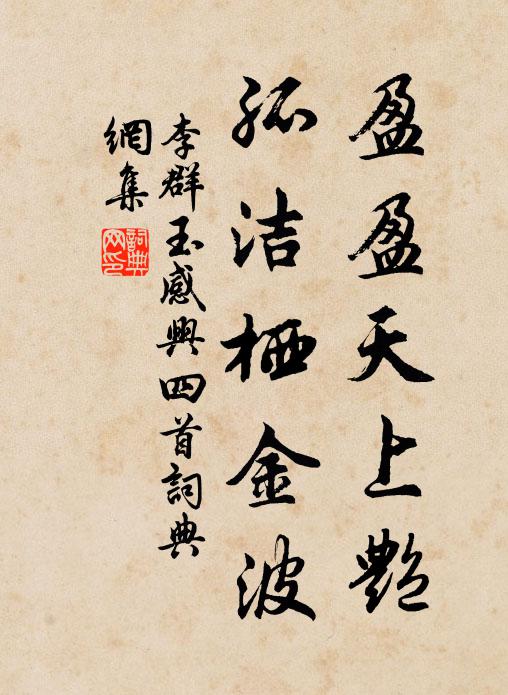 盈盈天上艷
孤洁栖金波
李群玉感興四首詞典
網集
詞典
网印